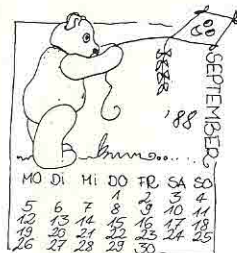 SEPTEMBER
'88
MO DI MI DO FR SA SO
1 2 3 4
5 6 7 8 9 10 11
12 13 14 15 16 17 18
19 20 21 22 23 24 25
26 27 28 29 30